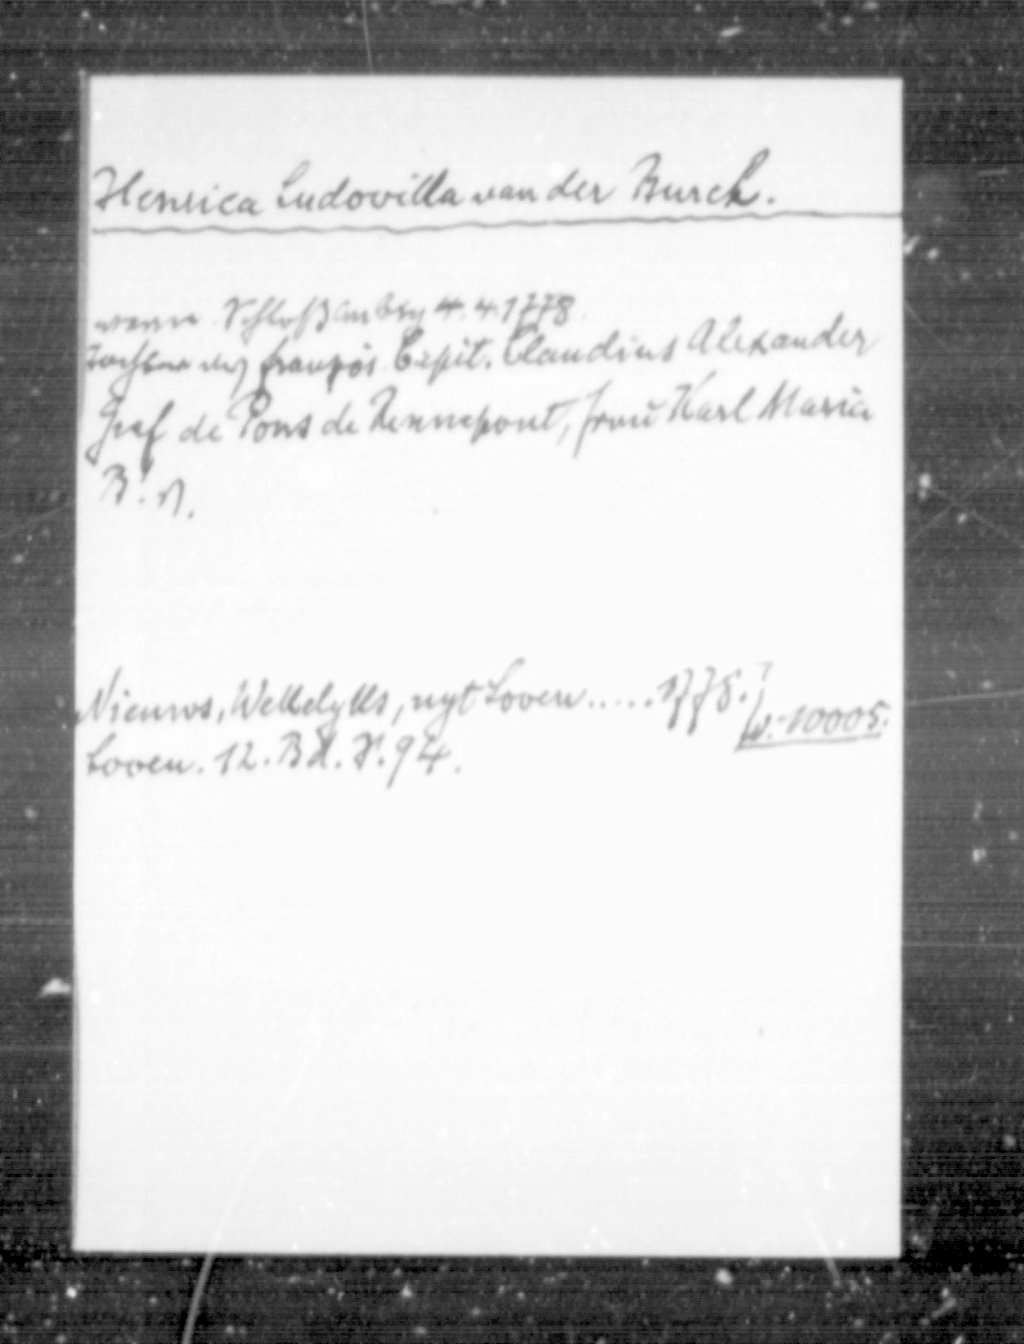 Henrica Ludovilla van der Burch.
Schloß Aubry 4.4.1778.
Tochter des französ. Capit. Claudius Alexander
Graf de Pons de Rennepont, frau Karl Maria
B! v.
Nieuws, Wekkelyks, uyt Loven.....1778.
Loven. 12. Bd. S. 94.
W. 10005.